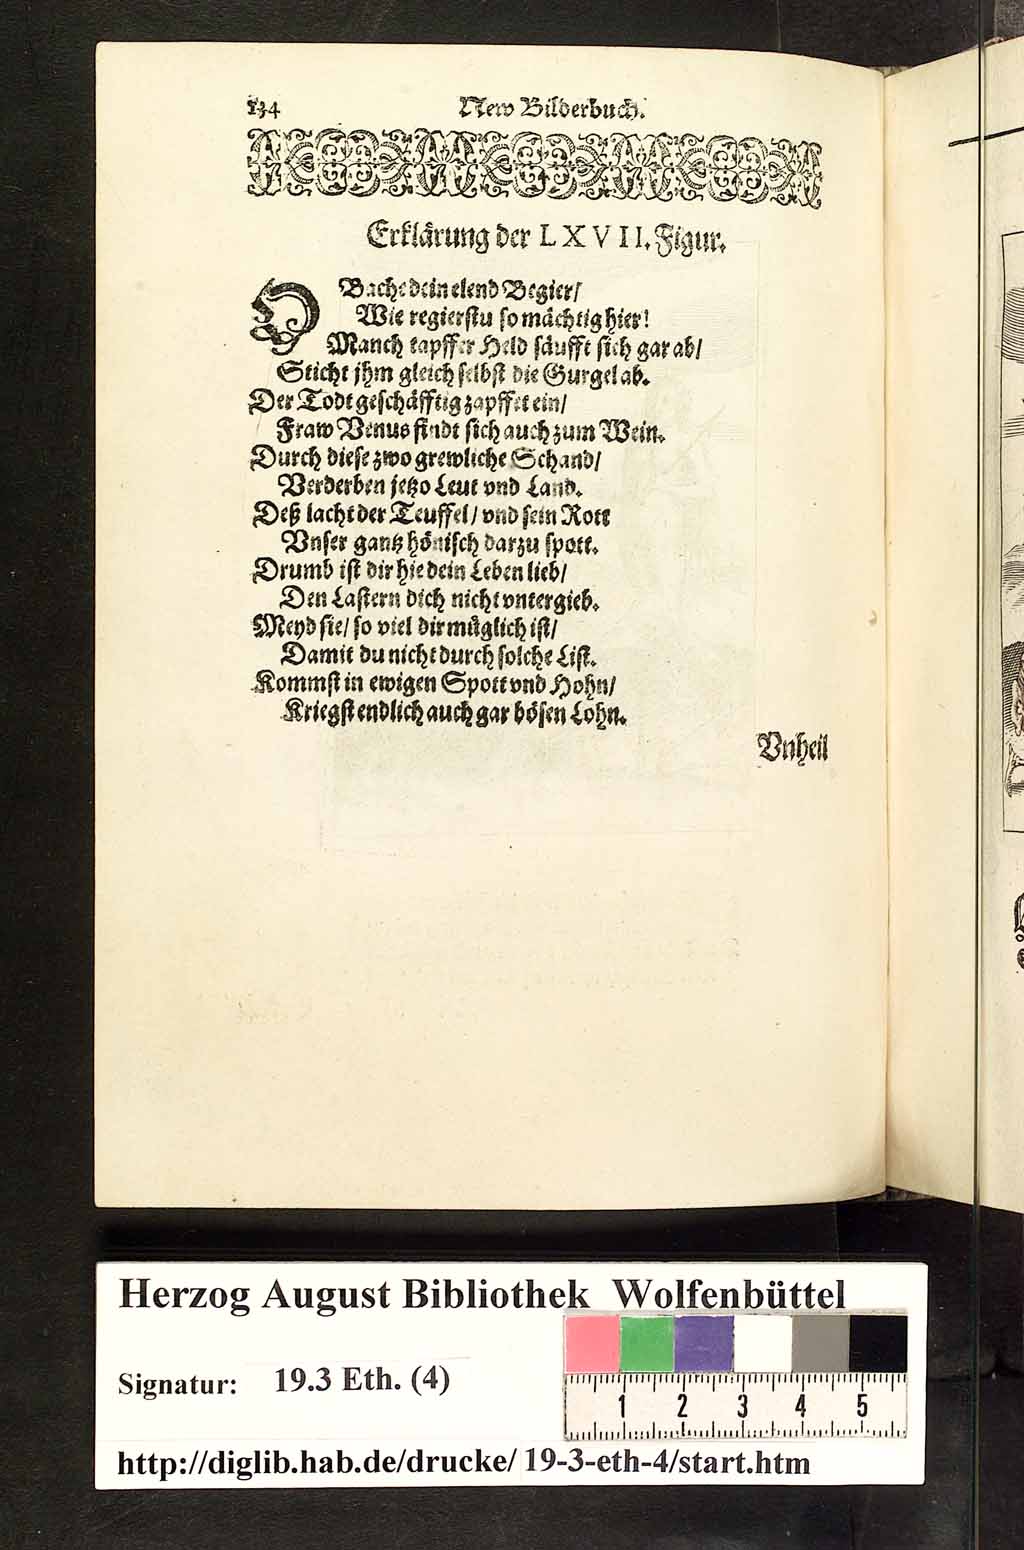 134 New Bilderbuch.
Erklärung der LXVII. Figur.
O Bache dein elend Begier/
Wie regierstu so mächtig hier!
Manch tapffer Held säufft sich gar ab/
Sticht jhm gleich selbst die Gurgel ab.
Der Todt geschäfftig zapffet ein/
Fraw Venus findt sich auch zum Wein.
Durch diese zwo grewliche Schand/
Verderben jetzo Leut vnd Land.
Deß lacht der Teuffel/ vnd sein Rott
Vnser gantz hönisch darzu spott.
Drumb ist dir hie dein Leben lieb/
Den Lastern dich nicht vntergieb.
Meyd sie/ so viel dir müglich ist/
Damit du nicht durch solche List.
Kommst in ewigen Spott vnd Hohn/
Kriegst endlich auch gar bösen Lohn.
Vnheil
Herzog August Bibliothek Wolfenbüttel
Signatur: 19.3 Eth. (4)
1 2 3 4 5
http://diglib.hab.de/drucke/19-3-eth-4/start.htm